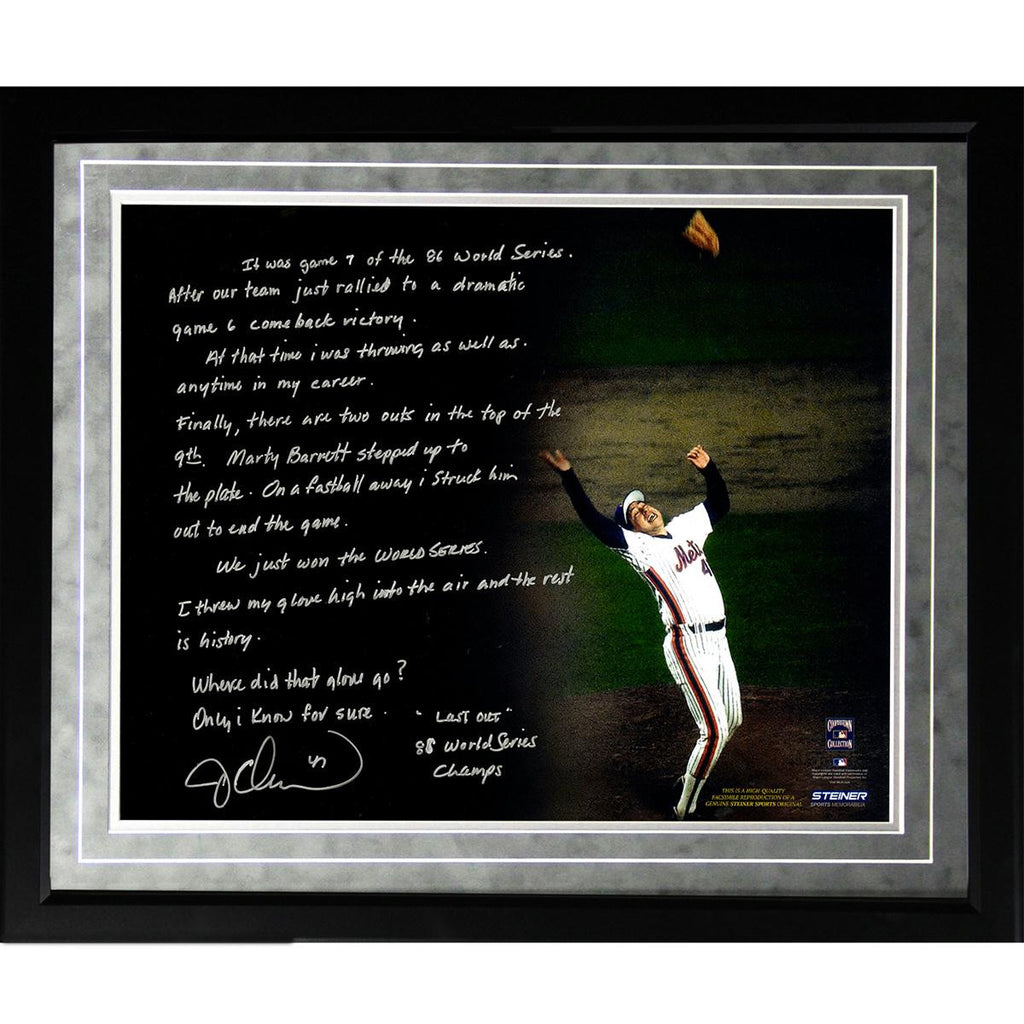 It was game 7 of the 86 World Series.
After our team just rallied to a dramatic
game 6 comeback victory.
At that time i was throwing as well as.
anytime in my career.
Finally, there are two outs in the top of the
9th. Marty Barrett stepped up to
the plate. On a fastball away i struck him
out to end the game.
We just won the WORLD SERIES.
I threw my glove high into the air and the rest
is history.
Where did that glove go?
Only i know for sure.
"Last out"
86 World Series
Champs
47
Mets
4
COOPERSTOWN
COLLECTION
THIS IS A HIGH QUALITY
FACSIMILE REPRODUCTION OF A
GENUINE STEINER SPORTS ORIGINAL
STEINER
SPORTS MEMORABILIA